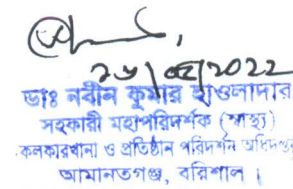 ২৬/০৫/2022
ডাঃ নবীন কুমার হাওলাদার
সহকারী মহাপরিদর্শক (স্বাস্থ্য)
কলকারখানা ও প্রতিষ্ঠান পরিদর্শন অধিদপ্তর
আমানতগঞ্জ, বরিশাল।